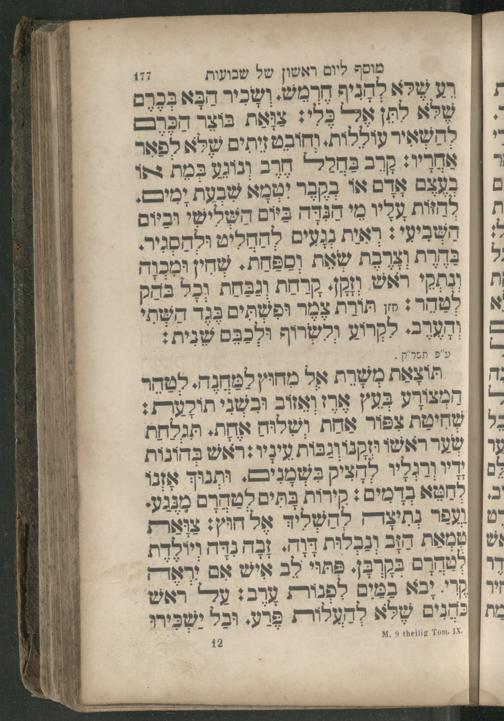 177 מוסף ליום ראשון של שבועות
רֵעַ שֶׁלֹּא לְהָנִיף חֶרְמֵשׁ. וְשָׂכִיר הַבָּא בְּכֶרֶם
שֶׁלֹּא לִתֵּן אֶל כֶּלִי: צַוָּאַת בּוֹצֵר הַכֶּרֶם
לְהַשְׁאִיר עוֹלֵלוֹת. וְחוֹבֵט זֵיתִים שֶׁלֹּא לְפָאֵר
אַחֲרָיו: קָרֵב בַּחֲלַל חֶרֶב וְנוֹגֵעַ בְּמֵת אוֹ
בְעֶצֶם אָדָם אוֹ בְקֶבֶר יִטְמָא שִׁבְעַת יָמִים.
לְהַזּוֹת עָלָיו מֵי הַנִּדָּה בַּיּוֹם הַשְּׁלִישִׁי וּבַיּוֹם
הַשְּׁבִיעִי: רְאִיַּת נְגָעִים לְהַחֲלִיט וּלְהַסְגִּיר.
בַּהֶרֶת וְצָרֶבֶת שְׂאֵת וְסַפַּחַת. שְׁחִין וּמִכְוָה
וְנִתְקֵי רֹאשׁ וְזָקָן. קָרַחַת וְגַבַּחַת וְכָל בֹּהַק
לְטַהֵר: חזן תּוֹרַת צֶמֶר וּפִשְׁתִּים בֶּגֶד הַשְּׁתִי
וְהָעֵרֶב. לִקְרוֹעַ וְלִשְׂרוֹף וּלְכַבֵּס שֵׁנִית:
ע״פ תשר״ק.
תּוֹצָאַת מְשָׁרֵת אֶל מִחוּץ לַמַּחֲנֶה. לְטַהֵר
הַמְּצוֹרָע בְּעֵץ אֶרֶז וְאֵזוֹב וּבִשְׁנִי תוֹלָעַת:
שְׁחִיטַת צִפּוֹר אַחַת וְשִׁלּוּחַ אֶחָת. תִּגְלַחַת
שְׂעַר רֹאשׁוֹ וּזְקָנוֹ וְגַבּוֹת עֵינָיו: רֹאשׁ בְּהוֹנוֹת
יָדָיו וְרַגְלָיו לְהַצִּיק בִּשְׁמָנִים. וּתְנוּךְ אָזְנוֹ
לְחַטֵּא בְדָמִים: קִירוֹת בָּתִּים לְטַהֲרָם מִנֶּגַע.
וַעֲפַר נְתִיצָה לְהַשְׁלִיךְ אֶל חוּץ: צַוָּאַת
טֻמְאַת הַזָּב וְנַבְלוּת דָּוָה. זָבָה נִדָּה וְיוֹלֶדֶת
לְטַהֲרָם בְּקָרְבָּן. פִּתּוּי לֵב אִישׁ אִם יִרְאֶה
קֶרִי. יָבֹא בַמַּיִם לִפְנוֹת עָרֶב: עַל רֹאשׁ
כֹּהֲנִים שֶׁלֹּא לְהַעֲלוֹת פֶּרַע. וּבַל יַשְׁכִּירוּ
M. 9 theilig Tom. IX.
12